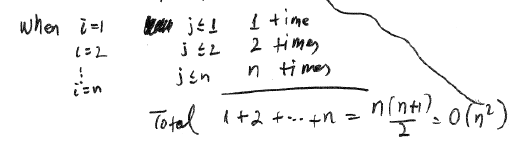 When i=1 j≤1 1 time
i=2 j≤2 2 times
⋮
i=n j≤n n times
Total 1+2+...+n = n(n+1)/2 = O(n²)